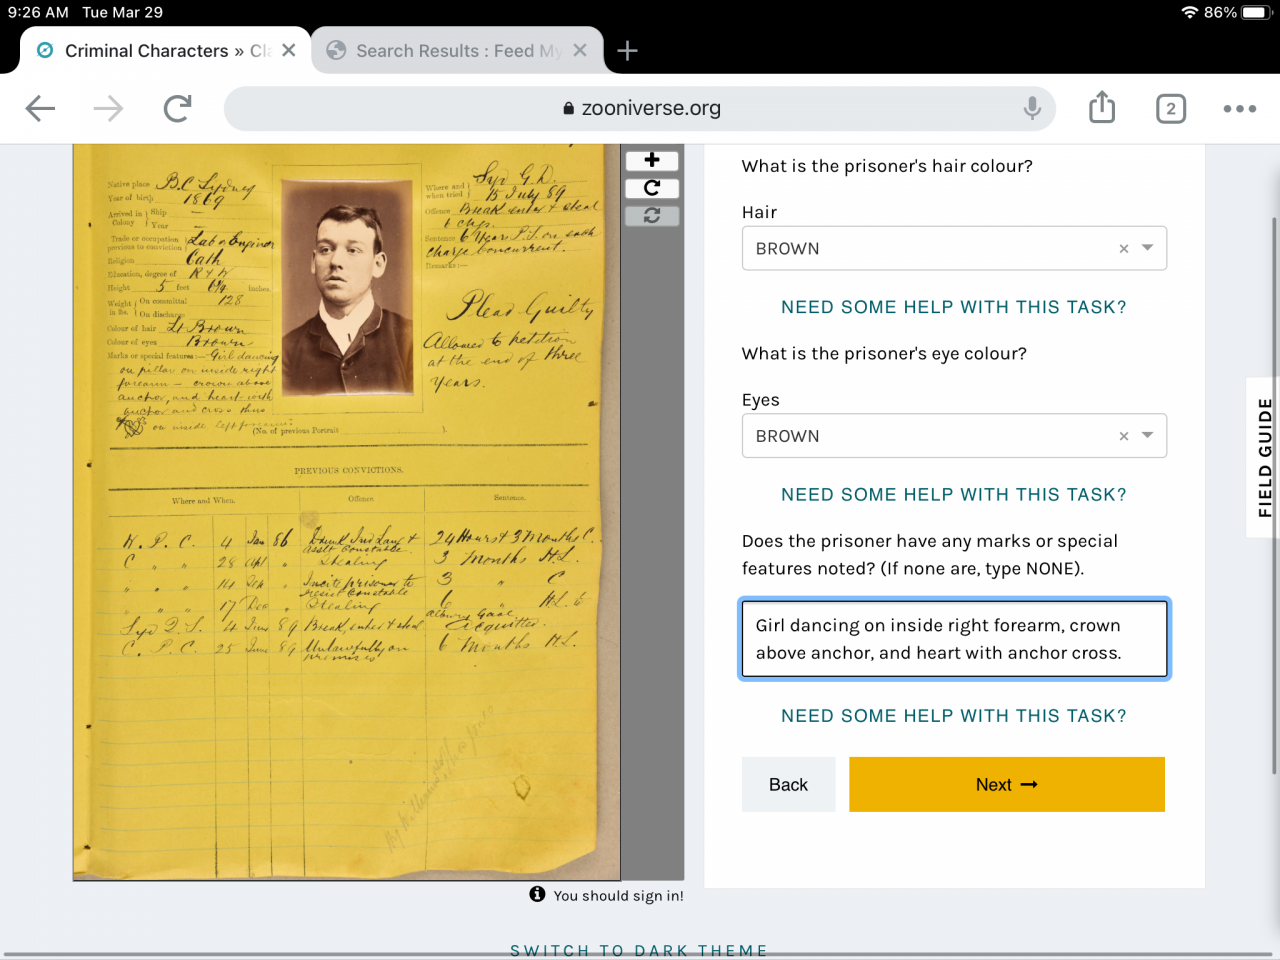 9:26 AM Tue Mar 29
86%
Criminal Characters » Cla
Search Results : Feed My
zooniverse.org
2
Native place B.C Sydney
Year of birth 1869
Arrived in Colony Ship —
Year —
Trade or occupation previous to conviction Lab & Engineer
Religion Cath
Education, degree of R & W
Height 5 feet 6¼ inches
Weight in lbs. On committal 128
On discharge
Colour of hair Lt Brown
Colour of eyes Brown
Marks or special features:— Girl dancing
on pillar on inside right
forearm — crown above
anchor, and heart with
anchor and cross thus
on inside left forearm
(No. of previous Portrait ).
Where and when tried Syd Q.S.
15 July 89
Offence Break enter & steal
Sentence 6 Years P.S. on each
charge concurrent.
Remarks:—
Plead Guilty
Allowed to petition
at the end of three
Years.
PREVIOUS CONVICTIONS.
Where and When. Offence. Sentence.
W. P. C. 4 Jan 86 Drunk, Ind Lang & asslt Constable 24 Hours & 3 Months C.
C " " 28 Apl " Stealing 3 Months H.L.
" " " 14 Sep " Incite prisoner to resist Constable 3 " C
" " " 17 Dec " Stealing 6 H.L.
Syd Q.S. 4 June 89 Break, enter & steal Acquitted.
C. P. C. 25 June 89 Unlawfully on premises 6 Months H.L.
What is the prisoner's hair colour?
Hair
BROWN
NEED SOME HELP WITH THIS TASK?
What is the prisoner's eye colour?
Eyes
BROWN
NEED SOME HELP WITH THIS TASK?
Does the prisoner have any marks or special
features noted? (If none are, type NONE).
Girl dancing on inside right forearm, crown
above anchor, and heart with anchor cross.
NEED SOME HELP WITH THIS TASK?
Back
Next →
FIELD GUIDE
You should sign in!
SWITCH TO DARK THEME